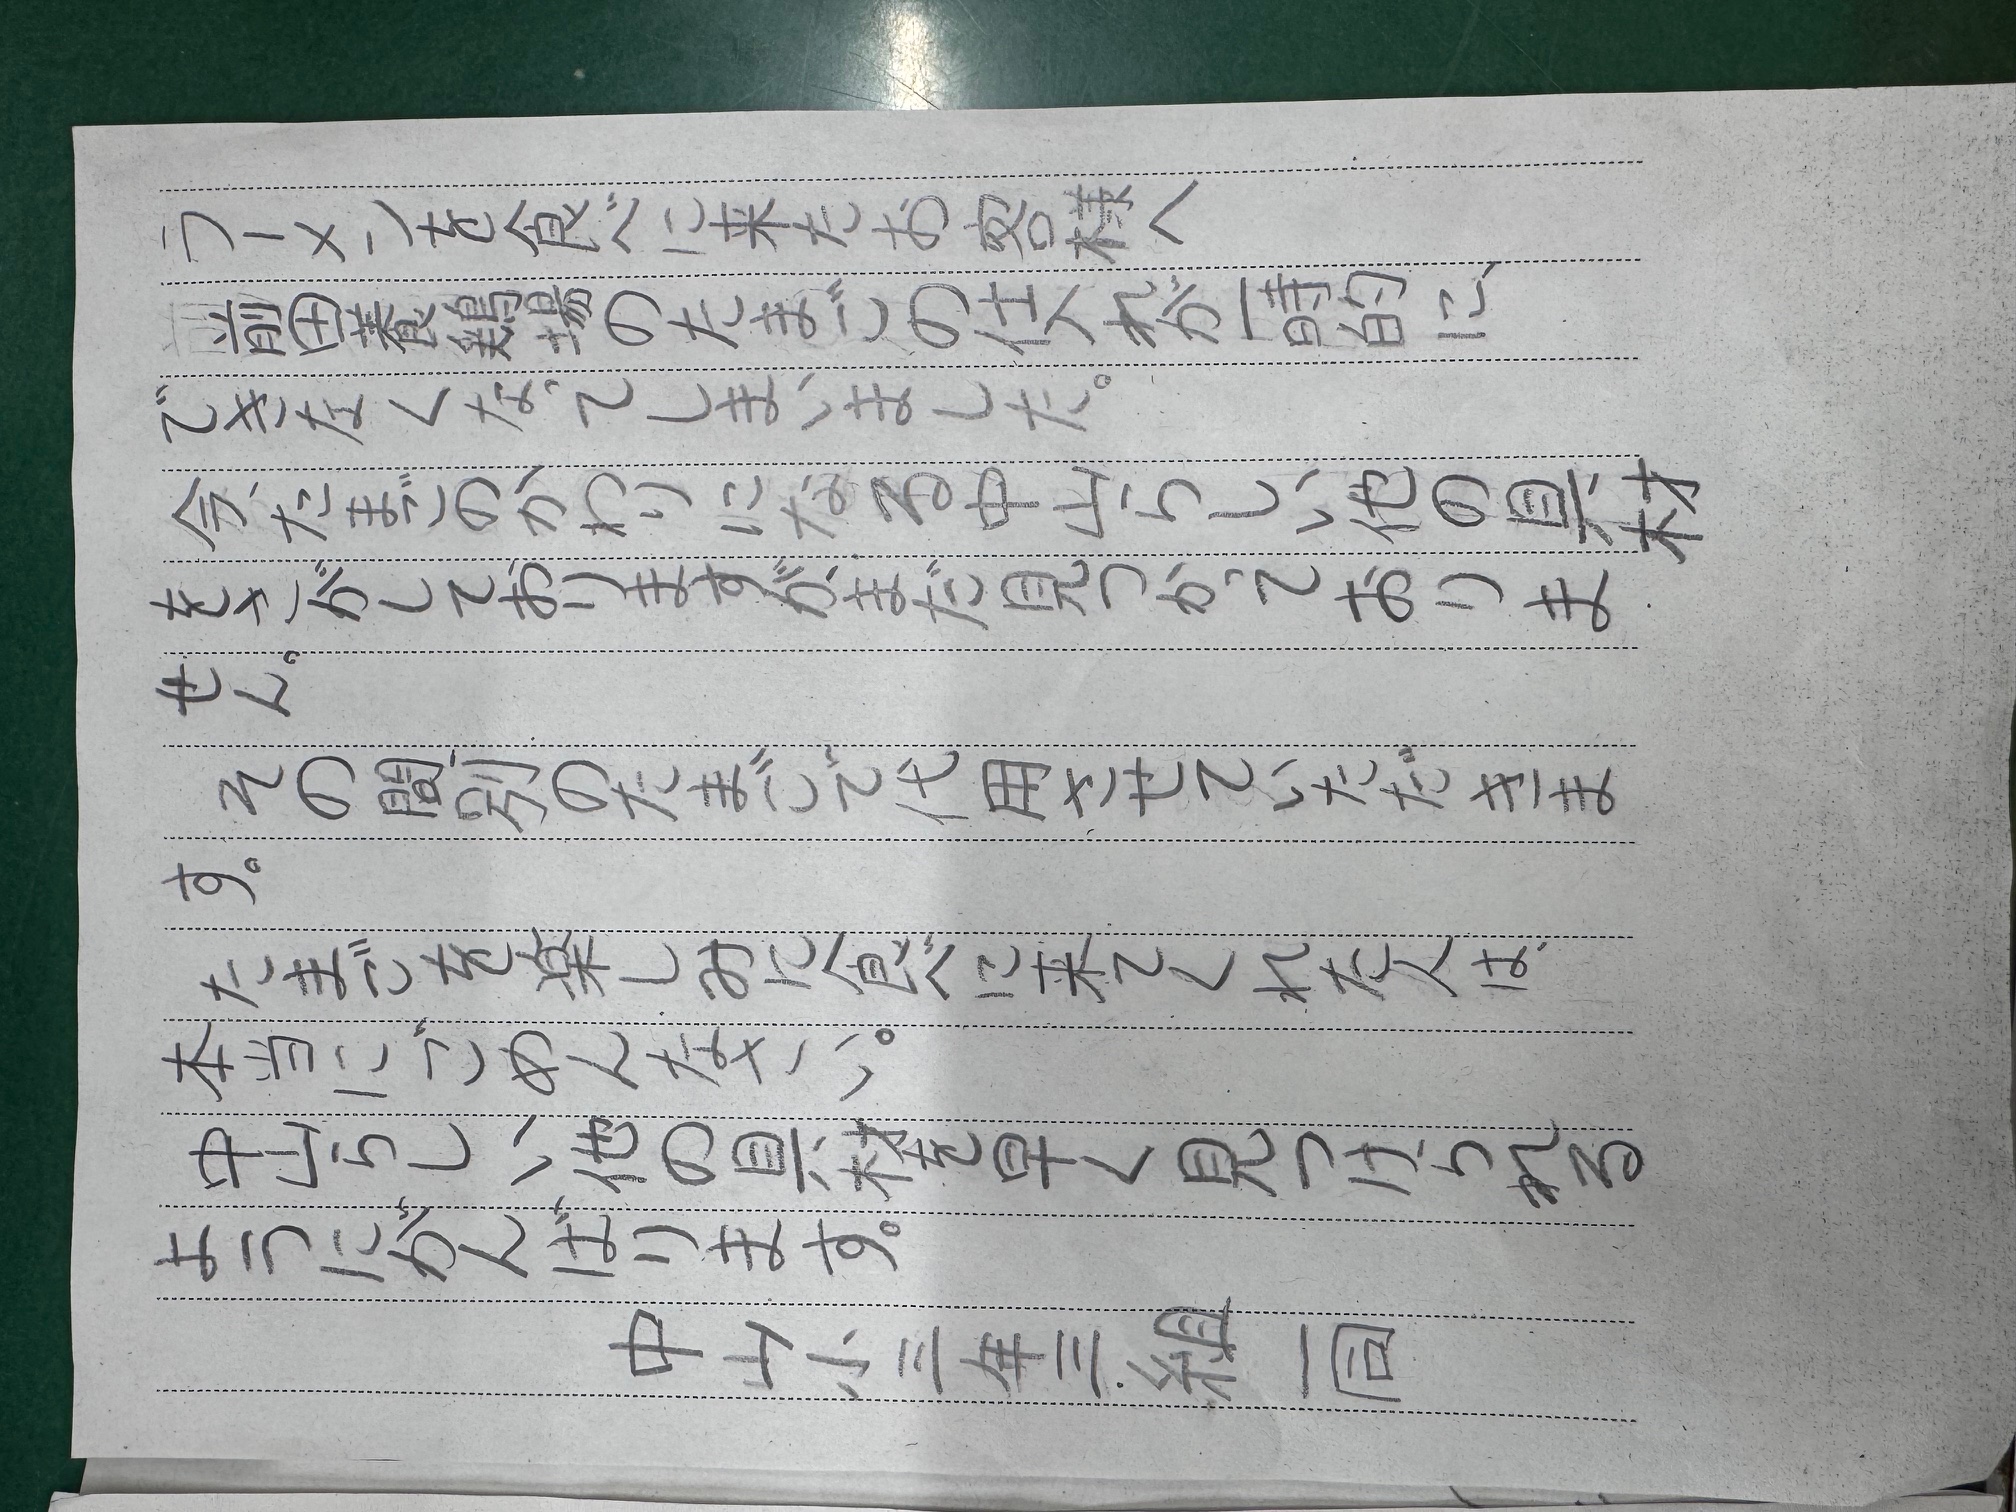 ラーメンを食べに来たお客様へ
前田養鶏場のたまごの仕入れが一時的に、
できなくなってしまいました。
今、たまごのかわりになる中山らしい他の具材
をさがしておりますが、まだ見つかっておりま
せん。
その間、別のたまごで代用させていただきま
す。
たまごを楽しみに食べに来てくれた人は、
本当にごめんなさい。
中山らしい他の具材を早く見つけられる
ようにがんばります。
中山小三年三組一同